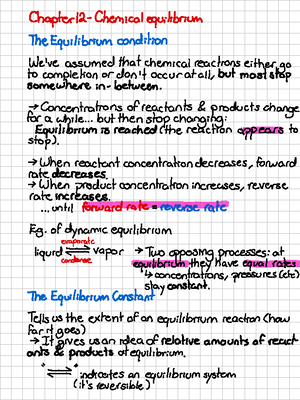 Chapter 12 - Chemical equilibrium
The Equilibrium condition
We've assumed that chemical reactions either go
to completion or don't occur at all, but most stop
somewhere in-between.
→ Concentrations of reactants & products change
for a while... but then stop changing:
Equilibrium is reached (the reaction appears to
stop).
→ When reactant concentration decreases, forward
rate decreases.
→ When product concentration increases, reverse
rate increases.
... until forward rate = reverse rate
Eg. of dynamic equilibrium
evaporate
liquid ⇌ vapor → Two opposing processes: at
condense
equilibrium they have equal rates
↳ concentrations, pressures (etc)
stay constant.
The Equilibrium Constant
Tells us the extent of an equilibrium reaction (how
far it goes)
→ It gives us an idea of relative amounts of react
ants & products at equilibrium.
"⇌" indicates an equilibrium system
(it's reversible)